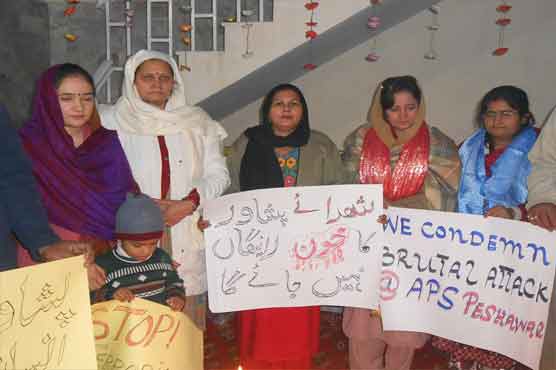 شہدائے پشاور
کا خون رائیگاں
نہیں جائے گا
WE CONDEMN
BRUTAL ATTACK
@ APS PESHAWAR
STOP!